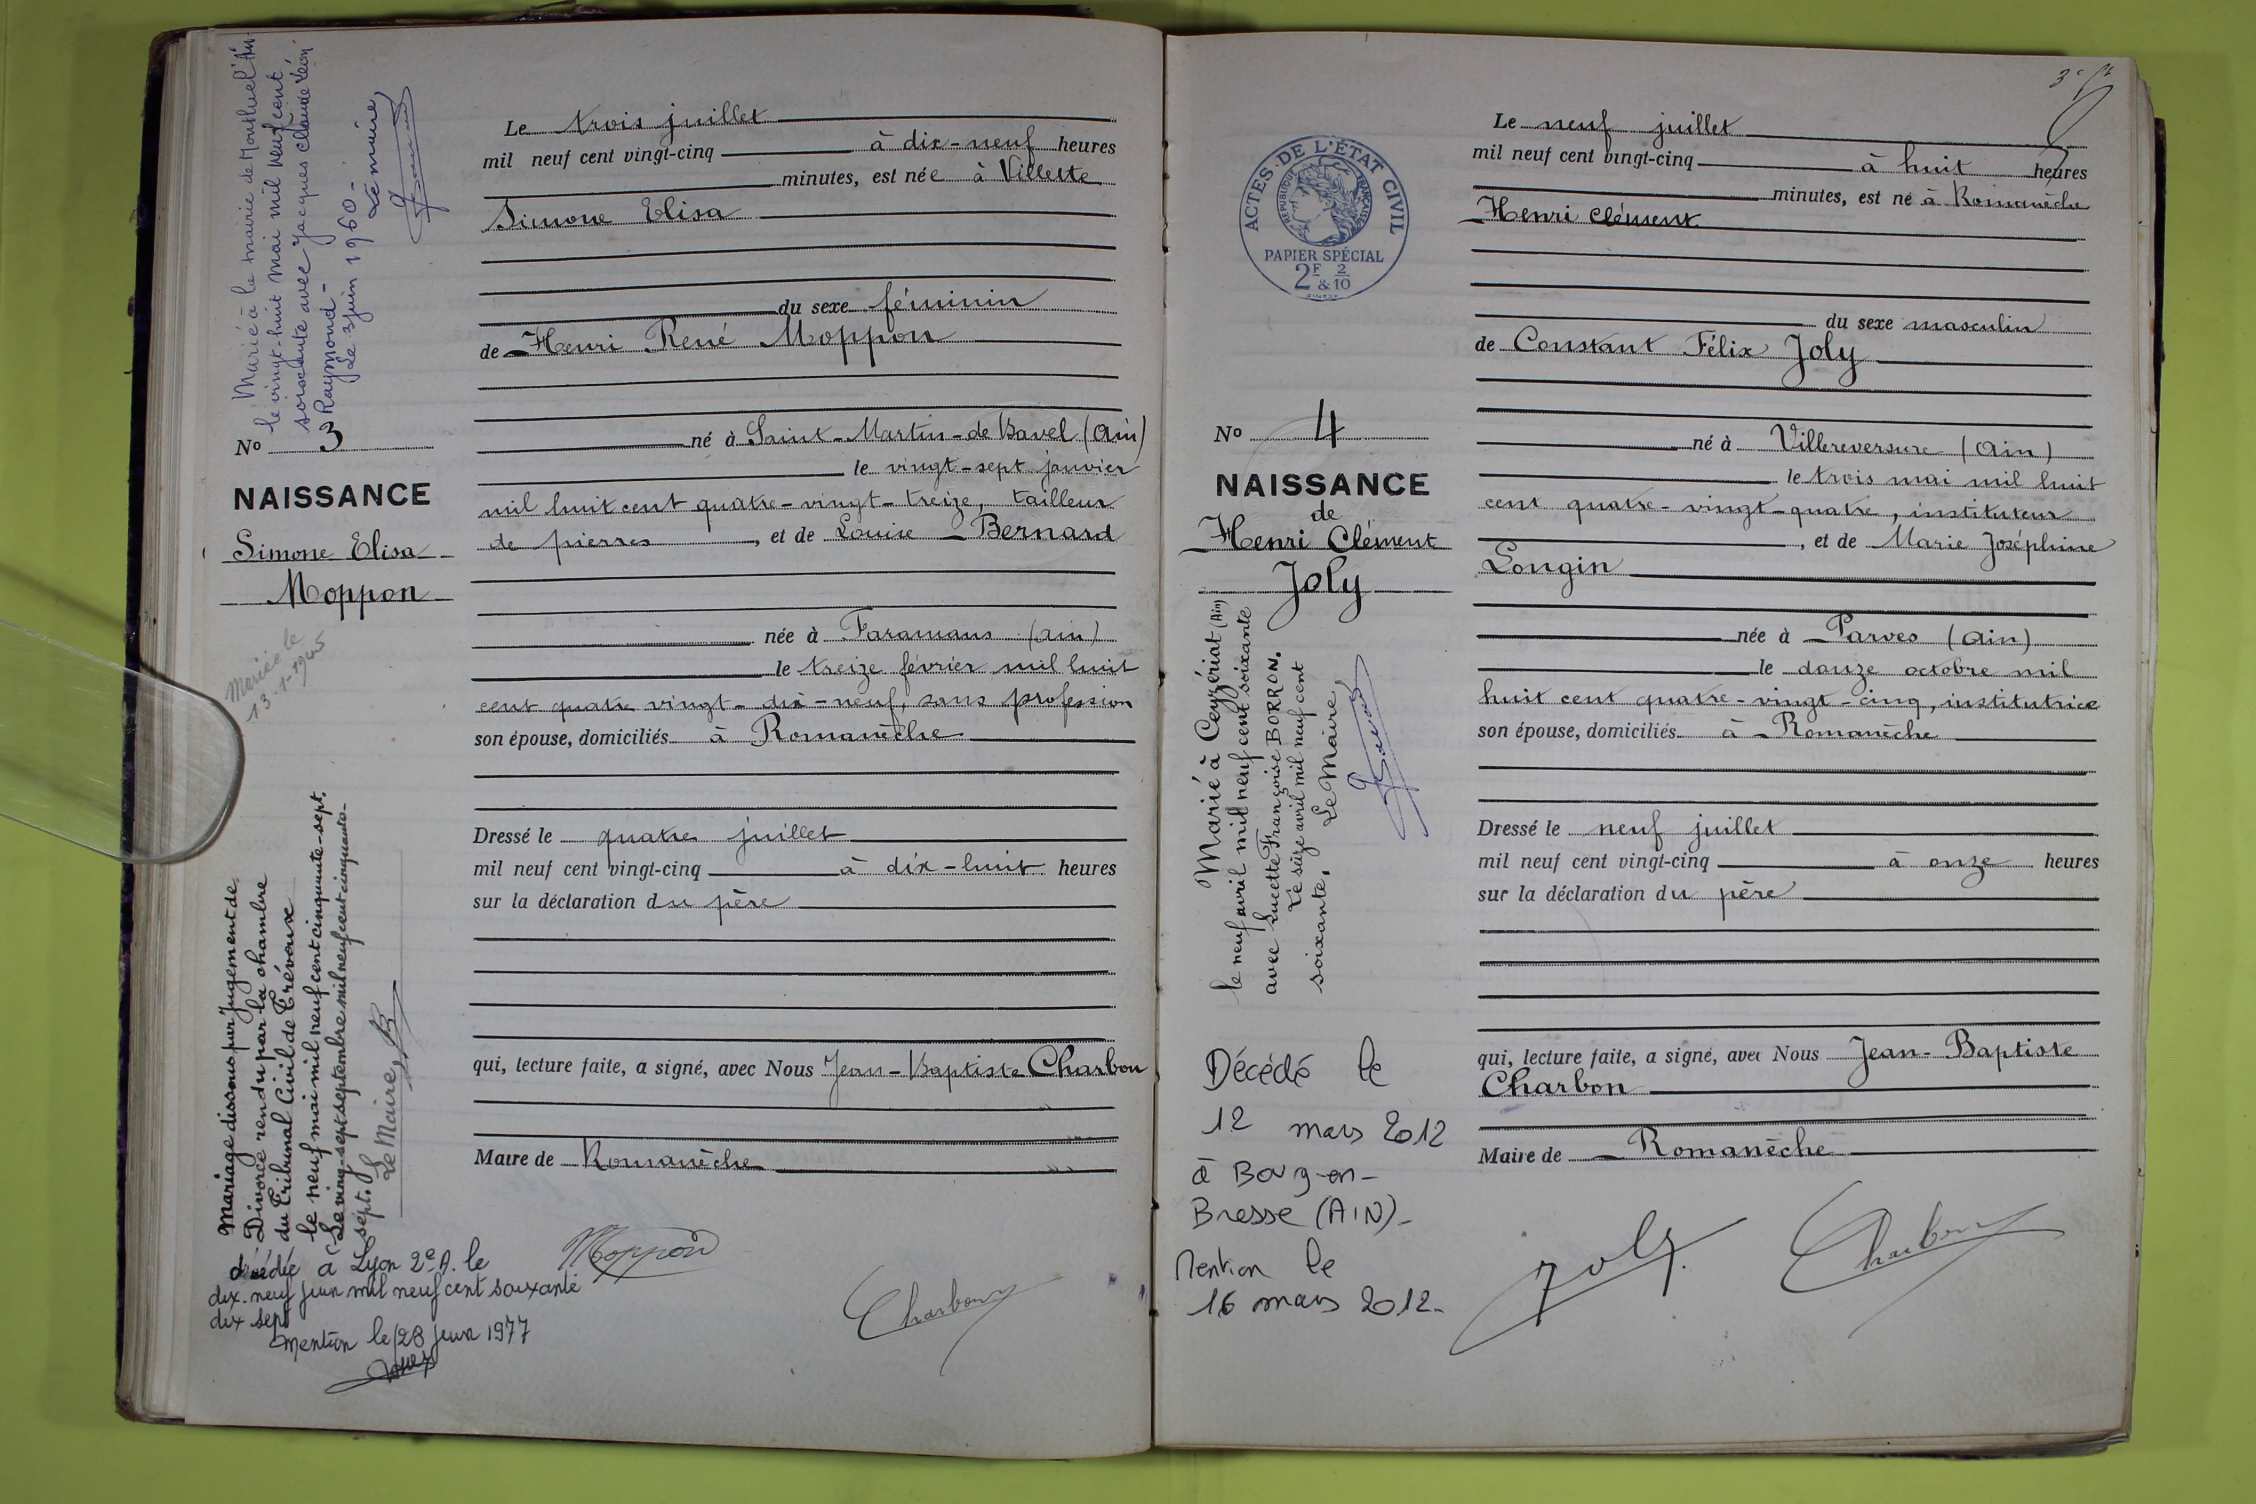 Mariée à la mairie de Montluel Ain
le vingt-huit mai mil neuf cent
soixante avec Jacques Claude Léon
Raymond -
Le 3 juin 1960 -
Le maire,
No 3
NAISSANCE
Simone Elisa
Moppon
Mariée le
13-1-1945
Mariage dissous par jugement de
Divorce rendu par la chambre
du Tribunal Civil de Trévoux
le neuf mai mil neuf cent cinquante-sept.
Le ving-sept septembre mil neuf cent cinquante-
sept. Le Maire,
décédée à Lyon 2e A. le
dix-neuf juin mil neuf cent soixante
dix sept
mention le 28 juin 1977
Le trois juillet
mil neuf cent vingt-cinq à dix-neuf heures
minutes, est née à Villette
Simone Elisa
du sexe féminin
de Henri René Moppon
né à Saint-Martin-de Bavel (Ain)
le vingt-sept janvier
mil huit cent quatre-vingt-treize, tailleur
de pierres, et de Louise Bernard
née à Faramans (Ain)
le treize février mil huit
cent quatre vingt-dix-neuf, sans profession
son épouse, domiciliés à Romanèche
Dressé le quatre juillet
mil neuf cent vingt-cinq à dix-huit heures
sur la déclaration du père
qui, lecture faite, a signé, avec Nous Jean-Baptiste Charbon
Maire de Romanèche
Moppon
Charbon
ACTES DE L'ÉTAT CIVIL
RÉPUBLIQUE FRANÇAISE
PAPIER SPÉCIAL
2F & 2/10
No 4
NAISSANCE
de
Henri Clément
Joly
Marié à Ceyzériat (Ain)
le neuf avril mil neuf cent soixante
avec Lucette Françoise BORRON.
Le seize avril mil neuf cent
soixante, Le Maire,
Décédé le
12 mars 2012
à Bourg-en-
Bresse (AIN)-
Mention le
16 mars 2012-
Le neuf juillet
mil neuf cent vingt-cinq à huit heures
minutes, est né à Romanèche
Henri Clément
du sexe masculin
de Constant Félix Joly
né à Villereversure (Ain)
le trois mai mil huit
cent quatre-vingt-quatre, instituteur
, et de Marie Joséphine
Longin
née à Parves (Ain)
le douze octobre mil
huit cent quatre-vingt-cinq, institutrice
son épouse, domiciliés à Romanèche
Dressé le neuf juillet
mil neuf cent vingt-cinq à onze heures
sur la déclaration du père
qui, lecture faite, a signé, avec Nous Jean-Baptiste
Charbon
Maire de Romanèche
Joly
Charbon